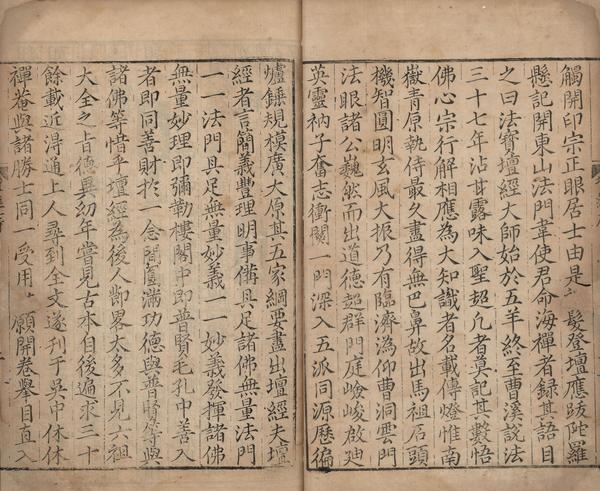 觸開印宗正眼居士由是祝髮登壇應跋陀羅
懸記開東山法門韋使君命海禪者錄其語目
之曰法寶壇經大師始於五羊終至曹溪說法
三十七年沾甘露味入聖超凡者莫記其數悟
佛心宗行解相應為大知識者名載傳燈惟南
嶽青原執侍最久盡得無巴鼻故出馬祖石頭
機智圓明玄風大振乃有臨濟溈仰曹洞雲門
法眼諸公巍然而出道德超群門庭嶮峻啟廸
英靈衲子奮志衝關一門深入五派同源歷徧
爐錘規模廣大原其五家綱要盡出壇經夫壇
經者言簡義豐理明事備具足諸佛無量法門
一一法門具足無量妙義一一妙義發揮諸佛
無量妙理即彌勒樓閣中即普賢毛孔中善入
者即同善財於一念間圓滿功德與普賢等與
諸佛等惜乎壇經為後人節畧太多不見六祖
大全之旨德異幼年嘗見古本自後遍求三十
餘載近得通上人尋到全文遂刊于吳中休休
禪菴與諸勝士同一受用 願開卷舉目直入